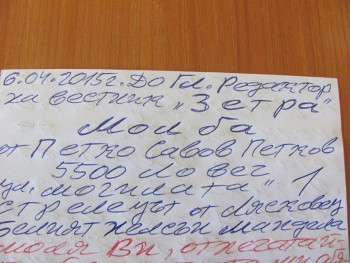 6.04.2015г. До Гл. Редактор
на вестник „Зетра“
Молба
от Петко Савов Петков
5500 Ловеч
ул. „Могилата“ 1
стрелецът от Лясковец
Белият Нелсън Мандела
моля Ви, отпечатай-